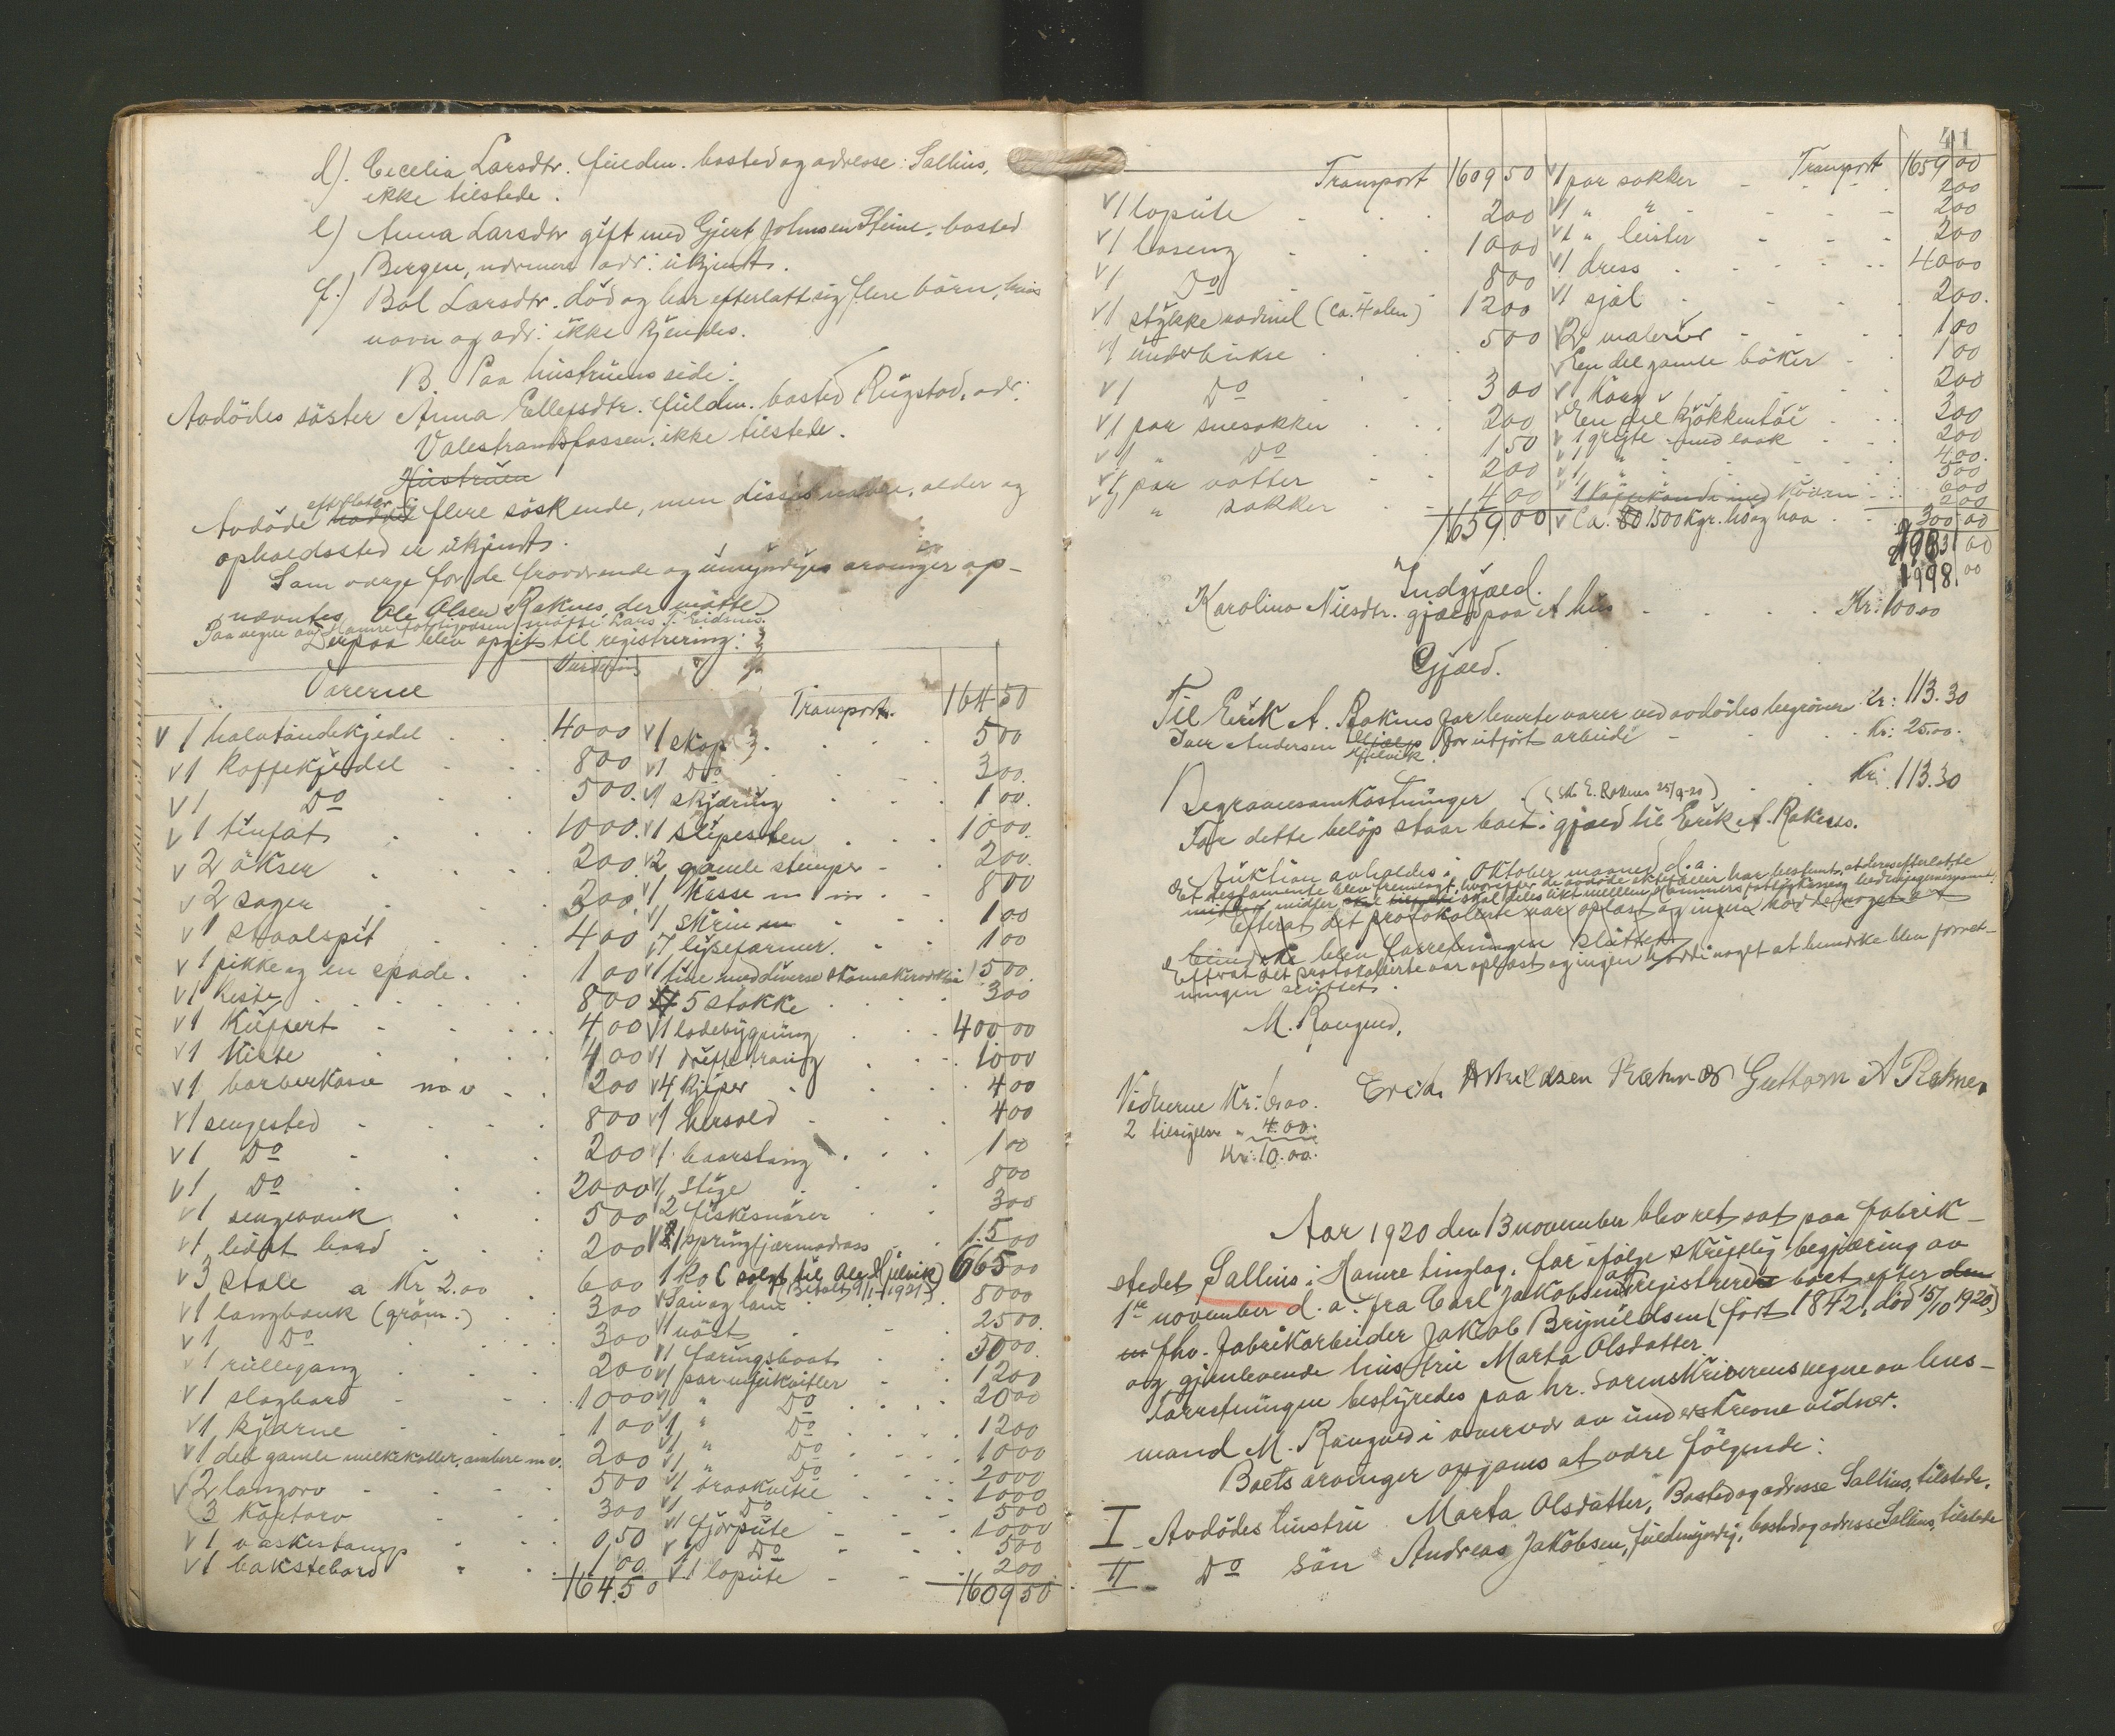 d). Cecelia Larsdtr. fuldm. bosted og adresse: Sallius,
ikke tilstede.
e) Anna Larsdtr gift med Gjert Johnsen Steine, bosted
Bergen, nærmere adr: ukjendt.
f.) Bol Larsdtr. død og har efterlatt sig flere børn, hvis
navn og adr: ikke kjendes.
B. Paa hustruens side:
Avdødes søster Anna Ellefsdtr. fuldm. bosted Rügstad, adr:
Valestrandsfossen. ikke tilstede.
Hustruen
efterlater sig
Avdøde havde flere søskende, men disses navne, alder og
opholdssted er ukjendt.
Som værge for de fraværende og umyndiges arvinger op-
nævntes Ole Olsen Raknes der møtte
Paa vegne av Hamre fattigvæsen møtte Lars J. Eidsnes.
Derpaa blev opgit til registrering:
Varerne Vurdering Transport. 164 50
v 1 halvtøndekjedel 40 00
v 1 kaffekjedel 8 00
v 1 Do 5 00
v 1 tinfat 10 00
v 2 økser 2 00
v 2 sager 3 00
v 1 staalspit 4 00
v 1 pikke og en spade 1 00
v 1 kiste 8 00
v 1 Kuffert 4 00
v 1 Kiste 4 00
v 1 barberkasse m v 2 00
v 1 sengested 8 00
v 1 Do 2 00
v 1 Do 20 00
v 1 sengebænk 5 00
v 1 lidet bord 2 00
v 3 stole a Kr 2.00 6 00
v 1 langbænk (grøn.) 3 00
v 1 Do 3 00
v 1 rullegang 2 00
v 1 slagbord 10 00
v 1 kjærne 1 00
v 1 del gamle melkekoller, ambere m v. 2 00
v 2 langorv 5 00
3 kortorv 3 00
v 1 vaskestamp 0,50
v 1 bakstebord 1 00
164.50
v 1 skap 5 00
v 1 Do 3 00
v 1 skjæring 1 00
v 1 slipesten 10 00
v 2 gamle stamper 2 00
v 1 Kasse m m 8 00
v 1 Skrin m 1 00
v 7 lyseformer 1 00
v 1 tine med diverse skomakerredskap 5 00
5 stokke 3 00
v 1 ladebygning 400 00
v 1 drøftetraug 10 00
v 4 kjiper 4 00
v 1 hersold 4 00
v 1 baarstang 1 00
v 1 stige 8 00
2 fiskesnører 3 00
v 1 springfjærmadrass 15 00
1 ko (solgt til Ole Hjelvik) 665 00
(Betalt 9/1-1921)
v Sau og lam 80 00
v 1 nøst 25 00
v 1 færingsbaat 50 00
v 1 par nyikvitler 12 00
v 1 " Do 20 00
v 1 " Do 12 00
v 1 " Do 10 00
v 1 " Do 20 00
v 1 braakvitel 10 00
v 1 Do 5 00
v 1 fjørpute 10 00
v 1 Do 5 00
v 1 lopute 2 00
1609 50
41
Transport 1609 50
v 1 lopute 2 00
v 1 loseng 10 00
v 1 Do 8 00
v 1 stykke vadmel (ca. 4 alen) 12 00
v 1 underbukse 5 00
v 1 Do 3 00
v 1 par snesokker 2 00
v 1 " Do 1 50
v 1 par votter 2 00
v 1 " sokker 4 00
1659 00
Transport 1659 00
v 1 par sokker 2 00
v 1 " " 2 00
v 1 " leister 2 00
v 1 dress 40 00
v 1 sjal 2 00.
v 2 malerier 1 00
v En del gamle bøker 1 00
v 1 Korg 2 00
v En del kjøkkentøi 3 00
v 1 gryte med lock 2 00
v 1 " 4 00.
v 1 " 5 00
v 1 Kaffekande med Kværn 6 00
2 00
v Ca. 1500 Kgr. høog haa 300 00
1998.00
Indgjæld.
Karolina Nilsdtr. gjæld paa et hus Kr: 100 00
Gjæld.
Til Erik A. Raknes for leverte varer ved avdødes begravelse Kr: 113.30
Iver Andersen Hjelvik for utført arbeide Kr: 25.00.
Begravelsesomkostninger (E. Raknes 25/9-20) Kr: 113.30
For dette beløp staar boet i gjæld til Erik A. Raknes.
Auktion avholdes i Oktober maaned d.a.
Et testamente blev fremlagt, hvorefter de avdøde ektefæller har bestemt, at deres efterlatte
midler skal deles likt mellem
Efterat det protokollerte var oplæst og ingen havde noget at
bemerke blev forretningen sluttet.
Efterat det protokollerte var oplæst og ingen hadde noget at bemerke blev forret-
ningen sluttet.
M. Rongved.
Erik Askildsen Raknes Guttorm A Raknes
Vidnerne Kr: 6.00.
2 tilsigelser " 4.00.
Kr: 10.00.
Aar 1920 den 13 november blev ret sat paa fabrik-
stedet Sallius i Hamre tinglag, for ifølge skriftlig begjæring av
1ste november d. a. fra Carl Jakobsen at registrere boet efter den
fhv. fabrikarbeider Jakob Brynildsen (født 1842, død 15/10 1920)
og gjenlevende hustru Marta Olsdatter.
Forretningen bestyredes paa hr. Sorenskriverens vegne av lens-
mand M. Rongved i overvær av underskrevne vidner.
Boets arvinger opgaves at være følgende:
I Avdødes hustru Marta Olsdatter, Bosted og adresse Sallius, tilstede.
II Do søn Andreas Jakobsen, fuldmyndig, bosted og adresse Sallius, tilstede